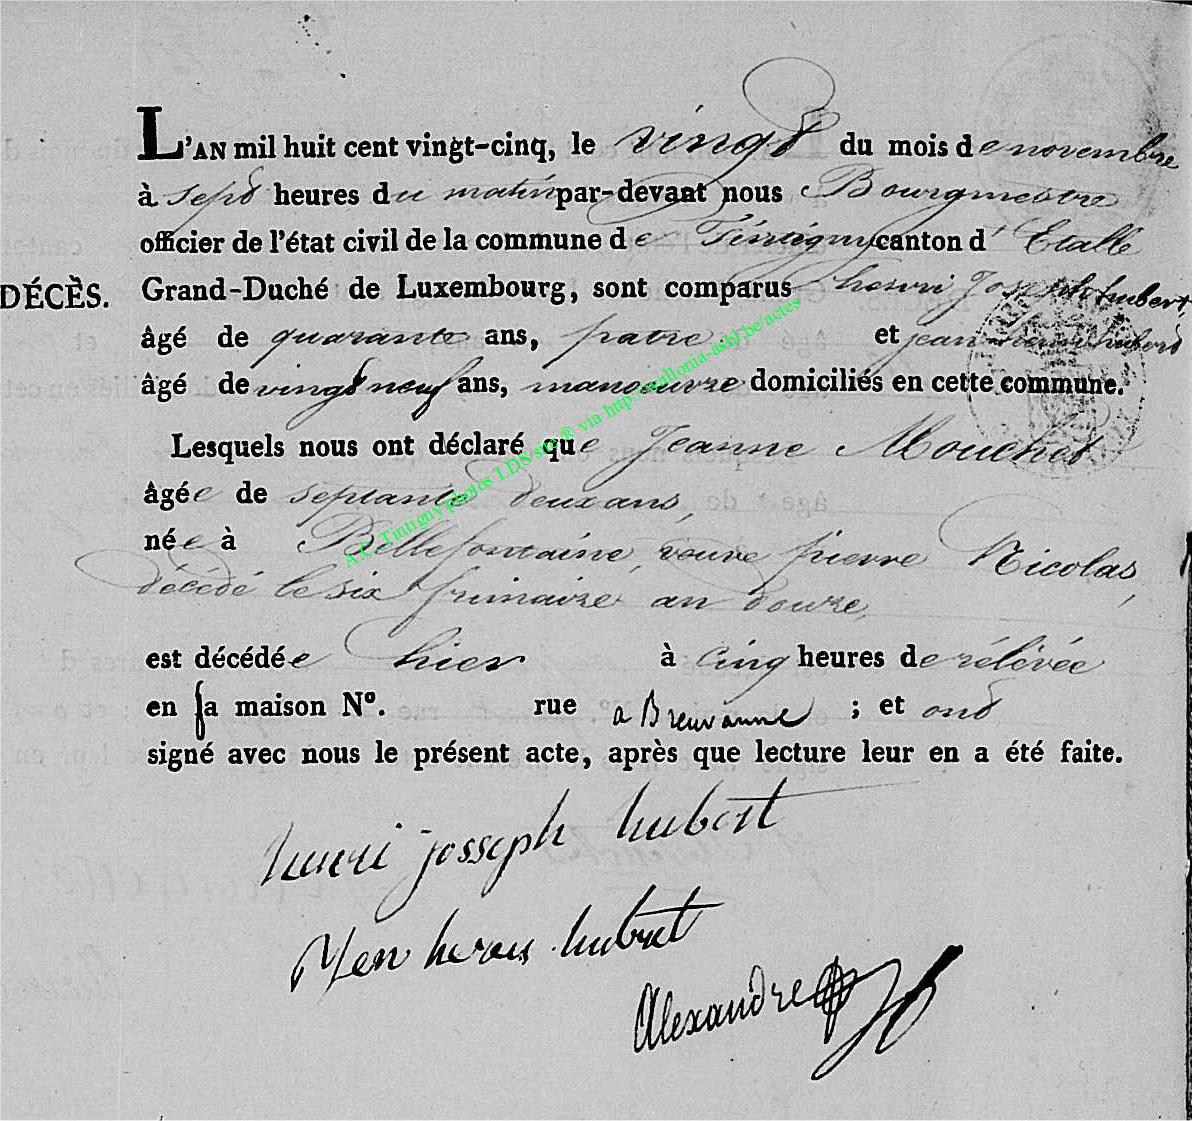 L'AN mil huit cent vingt-cinq, le vingt du mois de novembre
à sept heures du matin par-devant nous Bourgmestre
officier de l'état civil de la commune de Tintigny canton d' Etalle
DÉCÈS.
Grand-Duché de Luxembourg, sont comparus henri Joseph hubert,
âgé de quarante ans, patre et jean henri hubert
âgé de vingt neuf ans, manoeuvre domiciliés en cette commune.
Lesquels nous ont déclaré que Jeanne Mouchet
âgée de septante deux ans,
née à Bellefontaine, veuve pierre Nicolas,
décédé le six frimaire an douze,
est décédée hier à cinq heures de rélévée
en sa maison N°. rue a Breuvanne ; et ont
signé avec nous le présent acte, après que lecture leur en a été faite.
henri josseph hubert
hubert
Alexandre
A.C. Tintigny photos LDS site ® via http://wallonia-asbl.be/actes